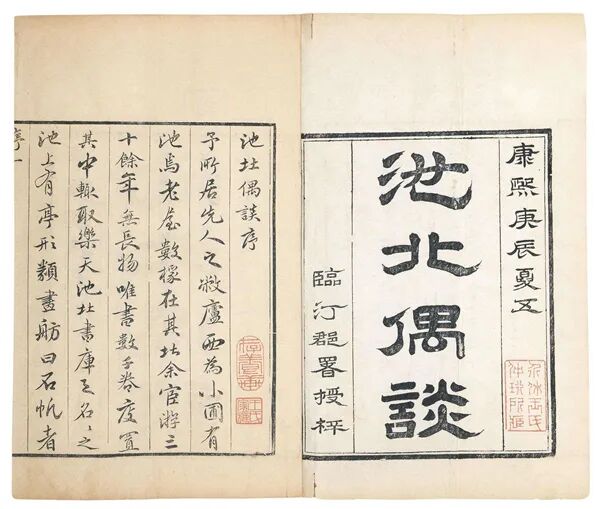 康熙庚辰夏五
池北偶談
臨汀郡署授梓
池北偶談序
予所居先人之敝廬西為小圃有
池焉老屋數椽在其北余宦游三
十餘年無長物唯書數千卷庋置
其中輒取樂天池北書庫之名々之
池上有亭形類畫舫曰石帆者
序一